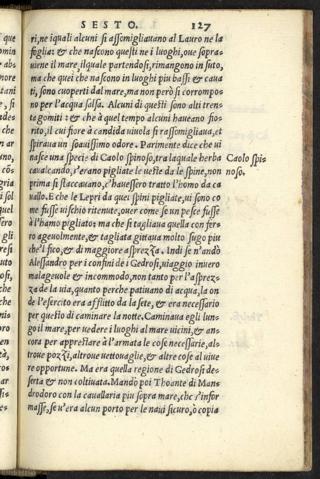 SESTO. 127
ri, ne i quali alcuni si assomigliauano al Lauro ne la
foglia: & che nascono questi ne i luoghi, oue sopra-
uiene il mare, ilquale partendosi, rimangono in secco,
ma che quei che nascono in luoghi piu bassi & caua
ti, sono cuoperti dal mare, ma non però si corrompo-
no per l'acqua salsa. Alcuni di questi sono alti tren-
ta gomiti: & che à quel tempo alcuni haueano fio-
rito, il cui fiore à candida uiuola si rassomigliaua, et
spiraua un soauissimo odore. Parimente dice che ui
nasce una specie di Caolo spinoso, tra laquale herba
caualcando, s'erano pigliate le ueste da le spine, non
prima si staccauano, c'hauessero tratto l'homo da ca
uallo. E che le Lepri da quei spini pigliate, ui sono co
me fusse uischio ritenute, ouer come se un pesce fusse
à l'hamo pigliato: ma che si tagliaua quella con fer-
ro ageuolmente, & tagliata gittaua molto sugo piu
che'l fico, & di maggiore asprezza. Indi se n'andò
Alessandro per i confini de i Gedrosi, uiaggio inuero
malageuole & incommodo, non tanto per l'asprez-
za de la uia, quanto perche patiuano di acqua, la on
de l'esercito era afflitto da la sete, & era necessario
per questo di caminare la notte. Caminaua egli lun-
go il mare, per uedere i luoghi al mare uicini, & an-
cora per apprestare à l'armata le cose necessarie, al-
troue pozzi, altroue uettouaglie, & altre cose al uiue
re opportune. Ma era quella regione di Gedrosi de-
serta & non coltiuata. Mandò poi Thoante di Man-
drodoro con la cauallaria piu sopra mare, che s'infor
masse, se u'era alcun porto per le naui sicuro, ò copia
Caolo spi-
noso.